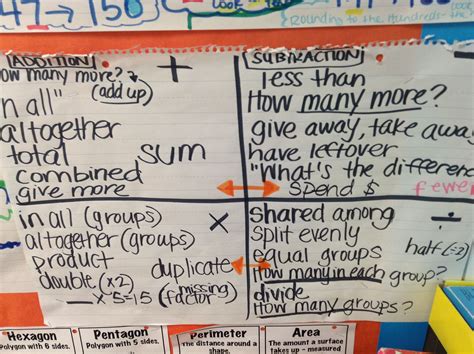 47 → 150
(rounding to the hundreds-
look
ADDITION
how many more?
(add up)
+
"in all"
altogether
total
sum
combined
give more
SUBTRACTION
less than
How many more?
give away, take away
have leftover
"What's the difference
spend $
fewe
in all (groups)
×
altogether (groups)
product
duplicate
double (×2)
__ × 5=15 (missing factor)
shared among
÷
split evenly
equal groups
half (÷2)
How many in each group?
divide
How many groups?
Hexagon
Polygon with 6 sides.
Pentagon
Polygon with 5 sides.
Perimeter
The distance around a
shape.
Area
The amount a surface
takes up - measured